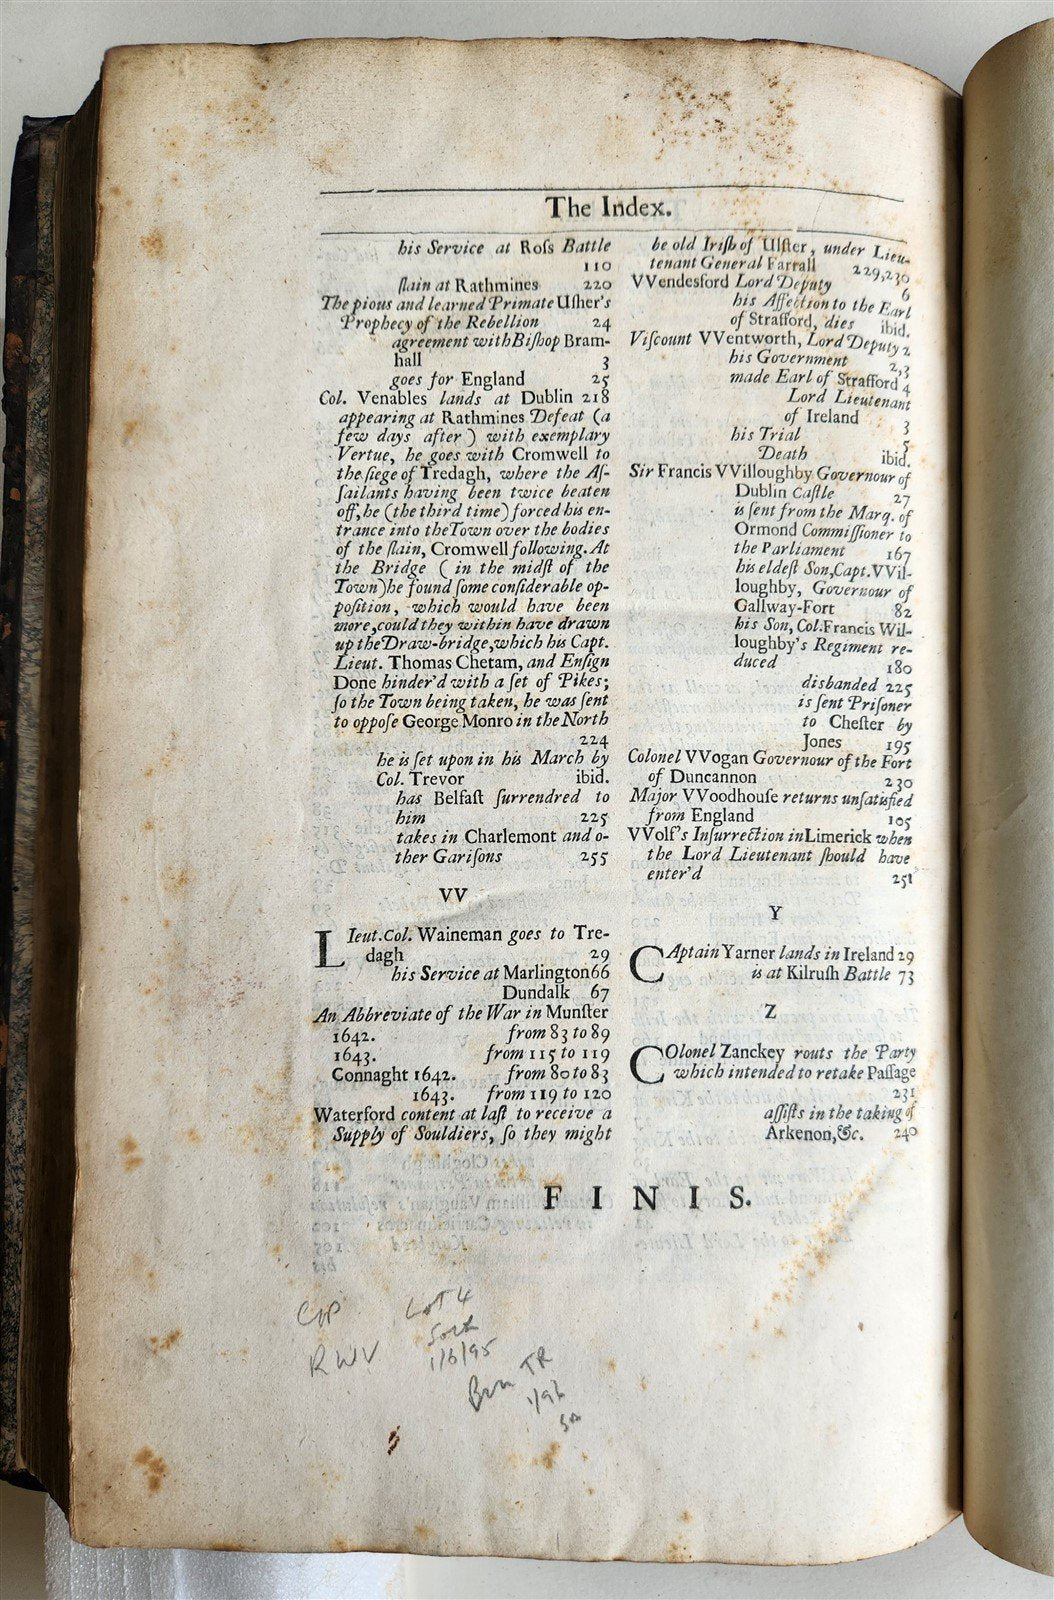 The Index.
his Service at Roſs Battle
110
ſlain at Rathmines 220
The pious and learned Primate Uſher's
Prophecy of the Rebellion 24
agreement with Biſhop Bram-
hall 3
goes for England 25
Col. Venables lands at Dublin 218
appearing at Rathmines Defeat (a
few days after) with exemplary
Vertue, he goes with Cromwell to
the ſiege of Tredagh, where the Aſ-
ſailants having been twice beaten
off, he (the third time) forced his en-
trance into the Town over the bodies
of the ſlain, Cromwell following. At
the Bridge (in the midſt of the
Town) he found ſome conſiderable op-
poſition, which would have been
more, could they within have drawn
up the Draw-bridge, which his Capt.
Lieut. Thomas Chetam, and Enſign
Done hinder'd with a ſet of Pikes;
ſo the Town being taken, he was ſent
to oppoſe George Monro in the North
224
he is ſet upon in his March by
Col. Trevor ibid.
has Belfaſt ſurrendred to
him 225
takes in Charlemont and o-
ther Gariſons 255
VV
LIeut. Col. Waineman goes to Tre-
dagh 29
his Service at Marlington 66
Dundalk 67
An Abbreviate of the War in Munſter
1642. from 83 to 89
1643. from 115 to 119
Connaght 1642. from 80 to 83
1643. from 119 to 120
Waterford content at laſt to receive a
Supply of Souldiers, ſo they might
be old Iriſh of Ulſter, under Lieu-
tenant General Farrall 229,230
VVendesford Lord Deputy 6
his Affection to the Earl
of Strafford, dies ibid.
Viſcount VVentworth, Lord Deputy 2
his Government 2,3
made Earl of Strafford 4
Lord Lieutenant
of Ireland 3
his Trial 5
Death ibid.
Sir Francis VVilloughby Governour of
Dublin Caſtle 27
is ſent from the Marq. of
Ormond Commiſſioner to
the Parliament 167
his eldeſt Son, Capt. VVil-
loughby, Governour of
Gallway-Fort 82
his Son, Col. Francis Wil-
loughby's Regiment re-
duced 180
disbanded 225
is ſent Priſoner
to Cheſter by
Jones 195
Colonel VVogan Governour of the Fort
of Duncannon 230
Major VVoodhouſe returns unſatisfied
from England 105
VVolf's Inſurrection in Limerick when
the Lord Lieutenant ſhould have
enter'd 251
Y
CAptain Yarner lands in Ireland 29
is at Kilruſh Battle 73
Z
COlonel Zanckey routs the Party
which intended to retake Paſſage
231
aſſiſts in the taking of
Arkenon, &c. 240
FINIS.
Lot 4
RWV
1/6/95
TR
1/96